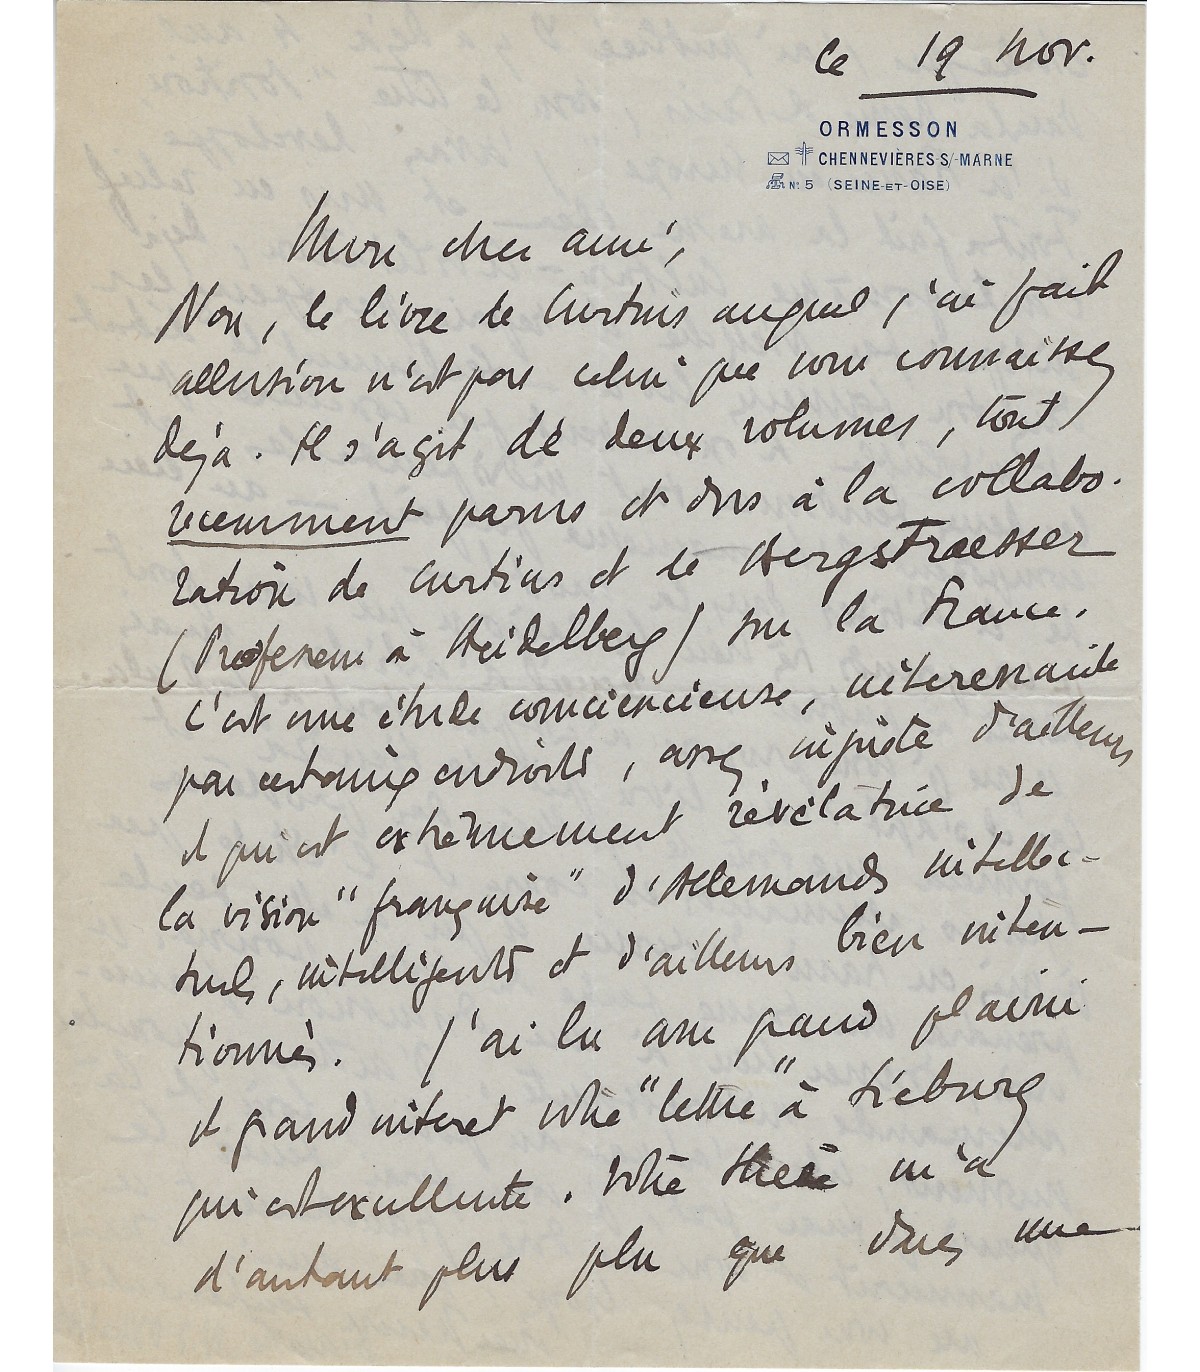 ce 19 Nov.
ORMESSON
CHENNEVIÈRES S/-MARNE
N° 5 (SEINE-ET-OISE)
Mon cher ami,
Non, le livre de Curtius auquel j'ai fait
allusion n'est pas celui que vous connaissez
déjà. Il s'agit de deux volumes, tout
recemment parus et dus à la collabo-
ration de Curtius et de Bergstraesser
(Professeur à Heidelberg) sur la France.
C'est une étude consciencieuse, interessante
par certains endroits, assez injuste d'ailleurs
et qui est extrêmement révélatrice de
la vision "française" d'Allemands intellec-
tuels, intelligents et d'ailleurs bien inten-
tionnés. J'ai lu avec grand plaisir
et grand interet votre "lettre" à Sieburg
qui est excellente. Votre thèse m'a
d'autant plus plu que dans une